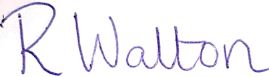 R Walton